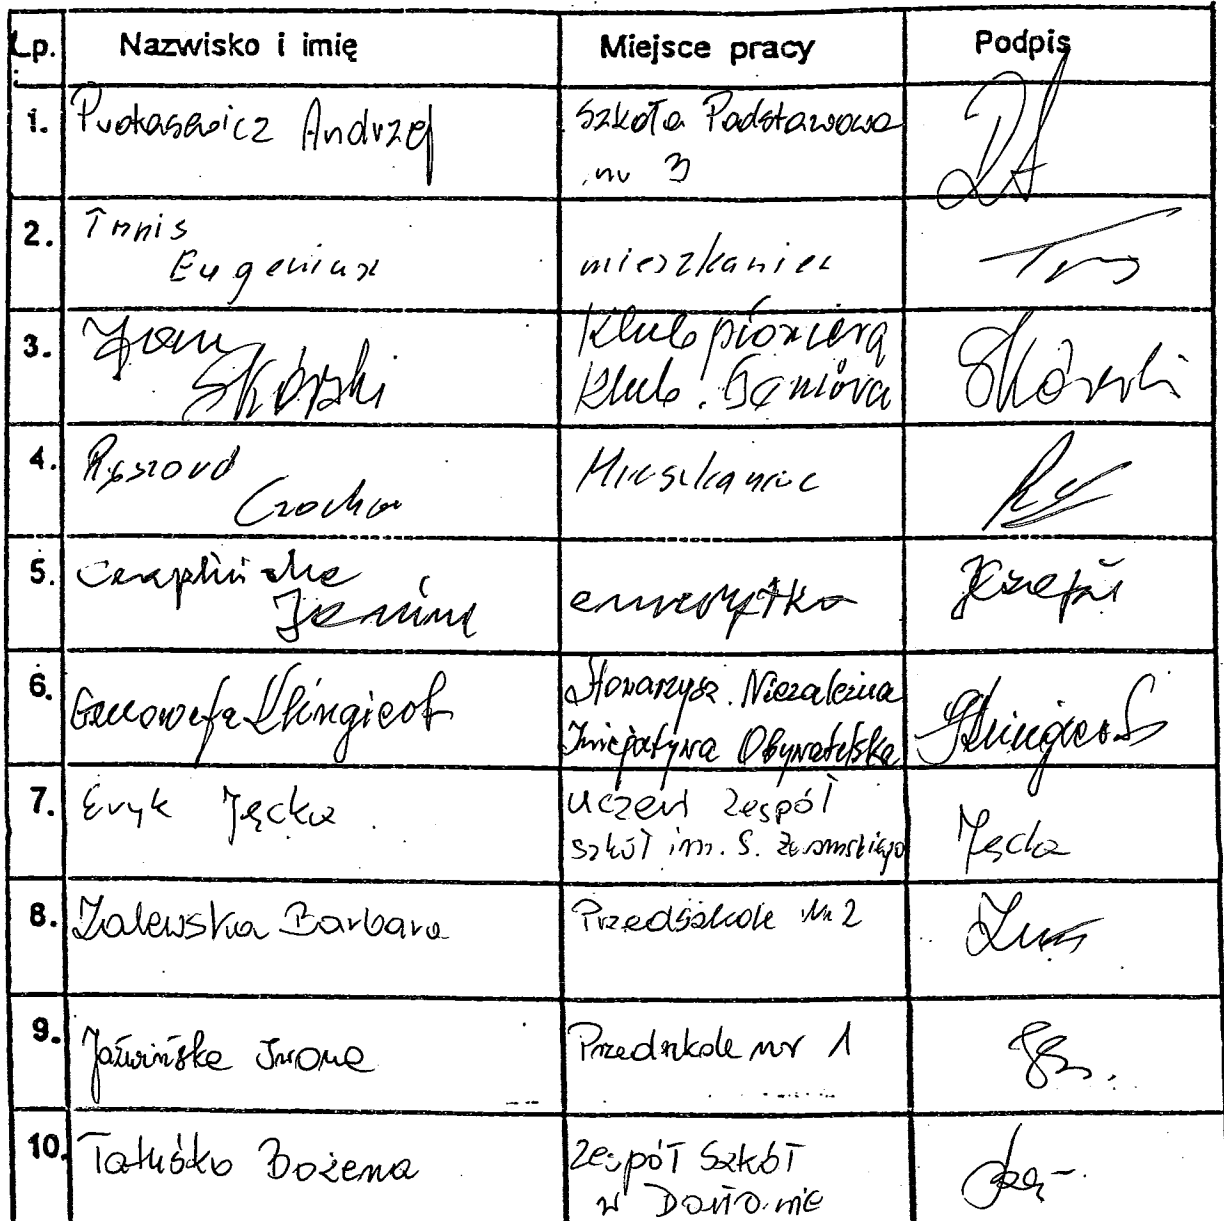 Lp. Nazwisko i imię Miejsce pracy Podpis
1. Protasewicz Andrzej Szkoła Podstawowa
nr 3
2.
Eugeniusz mieszkaniec
3. Jan Klub pioniera
Skórski Klub Seniora Skórski
4. Ryszard Mieszkaniec
Czocha
5. Czaplińska
Janina emerytka
6. Genowefa Stowarzysz. Niezależna
Inicjatywa Obywatelska
7. Eryk Jęcka Uczeń Zespół
szkół im. S. Żeromskiego Jęcka
8. Zalewska Barbara Przedszkole Nr 2
9. Jaźwińska Iwona Przedszkole nr 1
10. Tatuśko Bożena Zespół Szkół
w